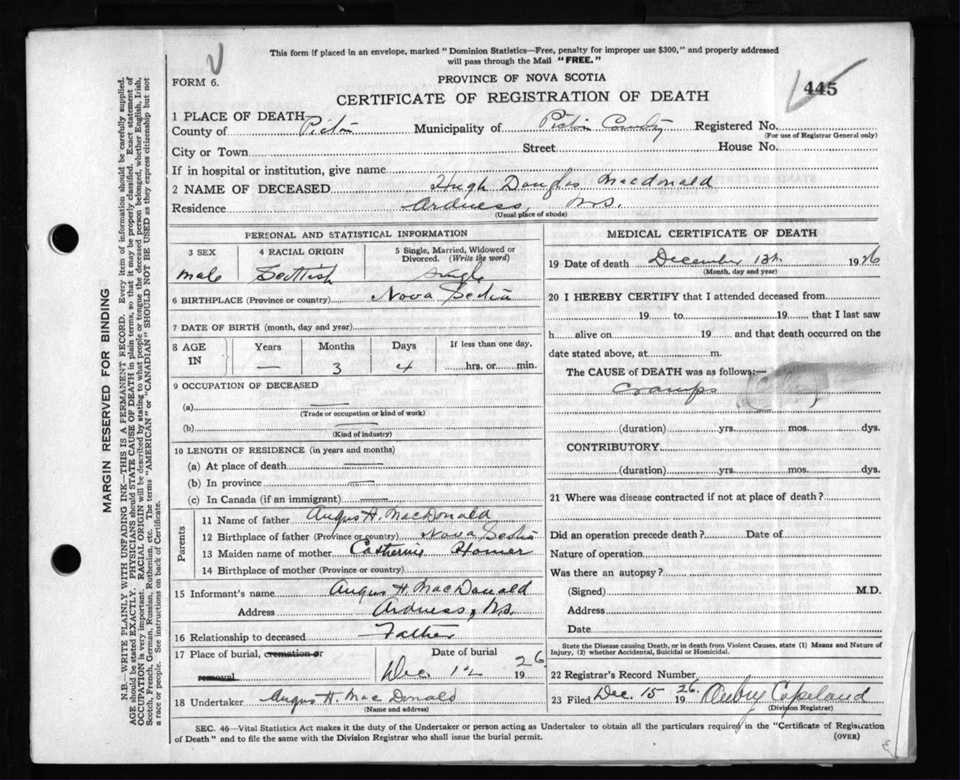 This form if placed in an envelope, marked "Dominion Statistics—Free, penalty for improper use $300," and properly addressed
will pass through the Mail "FREE."
FORM 6.
PROVINCE OF NOVA SCOTIA
445
CERTIFICATE OF REGISTRATION OF DEATH
1 PLACE OF DEATH
County of Pictou Municipality of Pictou County Registered No.
(For use of Registrar General only)
City or Town Street House No.
If in hospital or institution, give name
2 NAME OF DECEASED Hugh Douglas Macdonald
Residence Ardness, N.S.
(Usual place of abode)
PERSONAL AND STATISTICAL INFORMATION
3 SEX 4 RACIAL ORIGIN 5 Single, Married, Widowed or
Divorced. (Write the word)
male Scottish Single
6 BIRTHPLACE (Province or country) Nova Scotia
7 DATE OF BIRTH (month, day and year)
8 AGE IN Years Months Days If less than one day,
— 3 4 hrs. or min.
9 OCCUPATION OF DECEASED
(a)
(Trade or occupation or kind of work)
(b)
(Kind of industry)
10 LENGTH OF RESIDENCE (in years and months)
(a) At place of death
(b) In province
(c) In Canada (if an immigrant)
Parents
11 Name of father Angus H. MacDonald
12 Birthplace of father (Province or country) Nova Scotia
13 Maiden name of mother Catherine
14 Birthplace of mother (Province or country)
15 Informant's name Angus H. MacDonald
Address Ardness, N.S.
16 Relationship to deceased Father
17 Place of burial, cremation or removal Date of burial
Dec 1926
18 Undertaker Angus H. MacDonald
(Name and address)
MEDICAL CERTIFICATE OF DEATH
19 Date of death December 1926
(Month, day and year)
20 I HEREBY CERTIFY that I attended deceased from
19 to 19 that I last saw
h alive on 19 and that death occurred on the
date stated above, at m.
The CAUSE of DEATH was as follows:—
Cramps
(duration) yrs. mos. dys.
CONTRIBUTORY
(duration) yrs. mos. dys.
21 Where was disease contracted if not at place of death?
Did an operation precede death? Date of
Nature of operation
Was there an autopsy?
(Signed) M.D.
Address
Date
State the Disease causing Death, or in death from Violent Causes, state (1) Means and Nature of
Injury, (2) whether Accidental, Suicidal or Homicidal.
22 Registrar's Record Number
23 Filed Dec. 15 1926. Copeland
(Division Registrar)
SEC. 46—Vital Statistics Act makes it the duty of the Undertaker or person acting as Undertaker to obtain all the particulars required in the "Certificate of Registration
of Death" and to file the same with the Division Registrar who shall issue the burial permit.
(OVER)
MARGIN RESERVED FOR BINDING
N.B.—WRITE PLAINLY WITH UNFADING INK—THIS IS A PERMANENT RECORD. Every item of information should be carefully supplied.
AGE should be stated EXACTLY. PHYSICIANS should STATE CAUSE OF DEATH in plain terms, so that it may be properly classified. Exact statement of
OCCUPATION is very important. RACIAL ORIGIN will be described by stating to what people or tongue the deceased person belonged, whether English, Irish,
Scotch, French, German, Russian, Ruthenian, etc. The terms "AMERICAN" or "CANADIAN" SHOULD NOT BE USED as they express citizenship but not
a race or people. See instructions on back of Certificate.